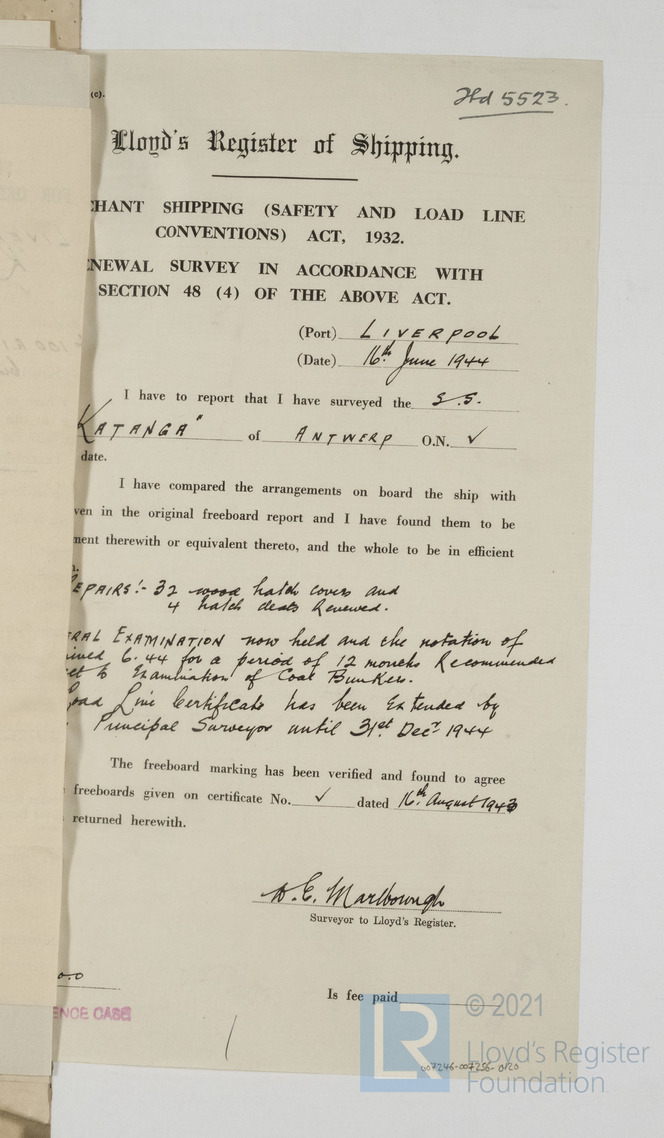 (c).
Hd 5523.
Lloyd's Register of Shipping.
CHANT SHIPPING (SAFETY AND LOAD LINE
CONVENTIONS) ACT, 1932.
ENEWAL SURVEY IN ACCORDANCE WITH
SECTION 48 (4) OF THE ABOVE ACT.
(Port) LIVERPOOL
(Date) 16th June 1944
I have to report that I have surveyed the S.S.
KATANGA" of ANTWERP O.N. ✓
date.
I have compared the arrangements on board the ship with
ven in the original freeboard report and I have found them to be
ment therewith or equivalent thereto, and the whole to be in efficient
n.
REPAIRS:- 32 wood hatch covers and
4 hatch deals Renewed.
RAL EXAMINATION now held and the notation of
6.44 for a period of 12 months Recommended
ect to Examination of Coal Bunkers.
Load Line Certificate has been Extended by
Principal Surveyor until 31st Decr 1944
The freeboard marking has been verified and found to agree
freeboards given on certificate No. ✓ dated 16th August 1943
returned herewith.
Surveyor to Lloyd's Register.
Is fee paid
ENCE CASE
LR
© 2021
Lloyd's Register
Foundation
007246-007256-0120